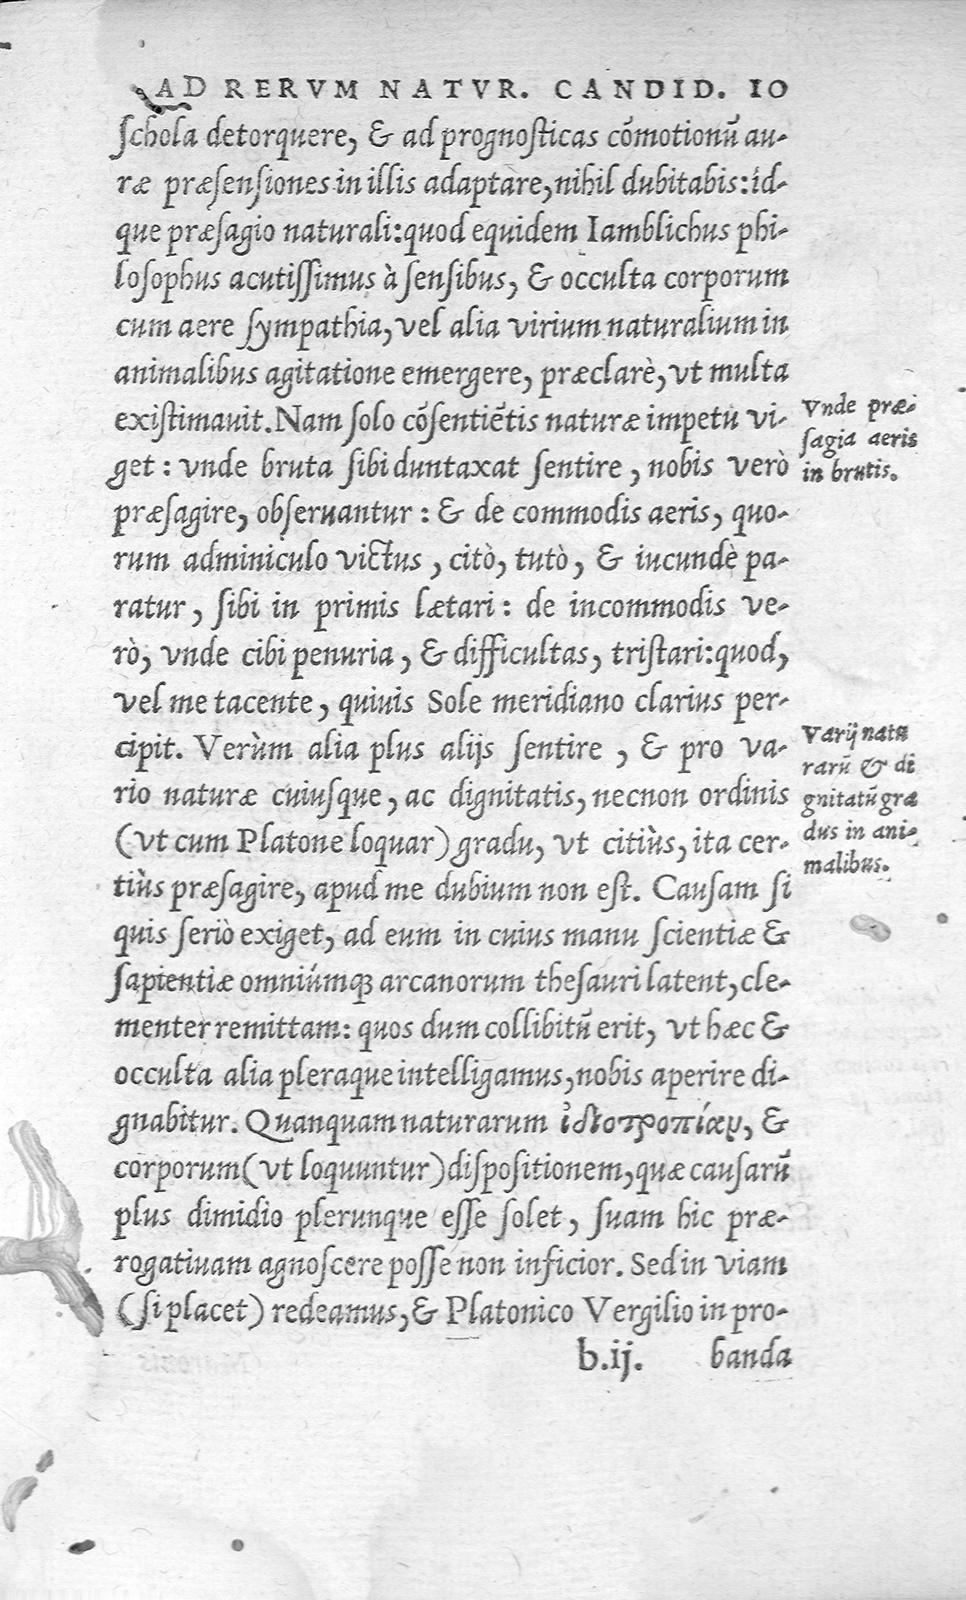 AD RERVM NATVR. CANDID. 10
ſchola detorquere, & ad prognoſticas cōmotionū au-
ræ præſenſiones in illis adaptare, nihil dubitabis: id-
que præſagio naturali: quod equidem Iamblichus phi-
loſophus acutiſſimus à ſenſibus, & occulta corporum
cum aere ſympathia, vel alia virium naturalium in
animalibus agitatione emergere, præclarè, vt multa
exiſtimauit. Nam ſolo cōſentiētis naturæ impetu vi-
get: vnde bruta ſibi duntaxat ſentire, nobis verò
præſagire, obſeruantur: & de commodis aeris, quo-
rum adminiculo victus, citò, tutò, & iucundè pa-
ratur, ſibi in primis lætari: de incommodis ve-
rò, vnde cibi penuria, & difficultas, triſtari: quod,
vel me tacente, quiuis Sole meridiano clarius per-
cipit. Verùm alia plus alijs ſentire, & pro va-
rio naturæ cuiuſque, ac dignitatis, necnon ordinis
(vt cum Platone loquar) gradu, vt citiùs, ita cer-
tiùs præſagire, apud me dubium non eſt. Cauſam ſi
quis ſeriò exiget, ad eum in cuius manu ſcientiæ &
ſapientiæ omniúmq; arcanorum theſauri latent, cle-
menter remittam: quos dum collibitū erit, vt hæc &
occulta alia pleraque intelligamus, nobis aperire di-
gnabitur. Quanquam naturarum ἰδιοτροπίαν, &
corporum (vt loquuntur) diſpoſitionem, quæ cauſarū
plus dimidio plerunque eſſe ſolet, ſuam hic præ-
rogatiuam agnoſcere poſſe non inficior. Sed in viam
(ſi placet) redeamus, & Platonico Vergilio in pro-
b.ij. banda
Vnde præ-
ſagia aeris
in brutis.
Varij natu
rarū & di
gnitatū gra
dus in ani-
malibus.